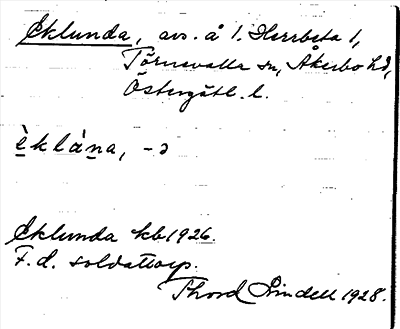 Eklunda, avs. å 1. Herrbeta 1,
Törnevalla sn, Åkerbo hd,
Östergötl. l.
èklána, -ɔ
Eklunda kb 1926.
F. d. soldattorp.
Thord Lindell 1928.